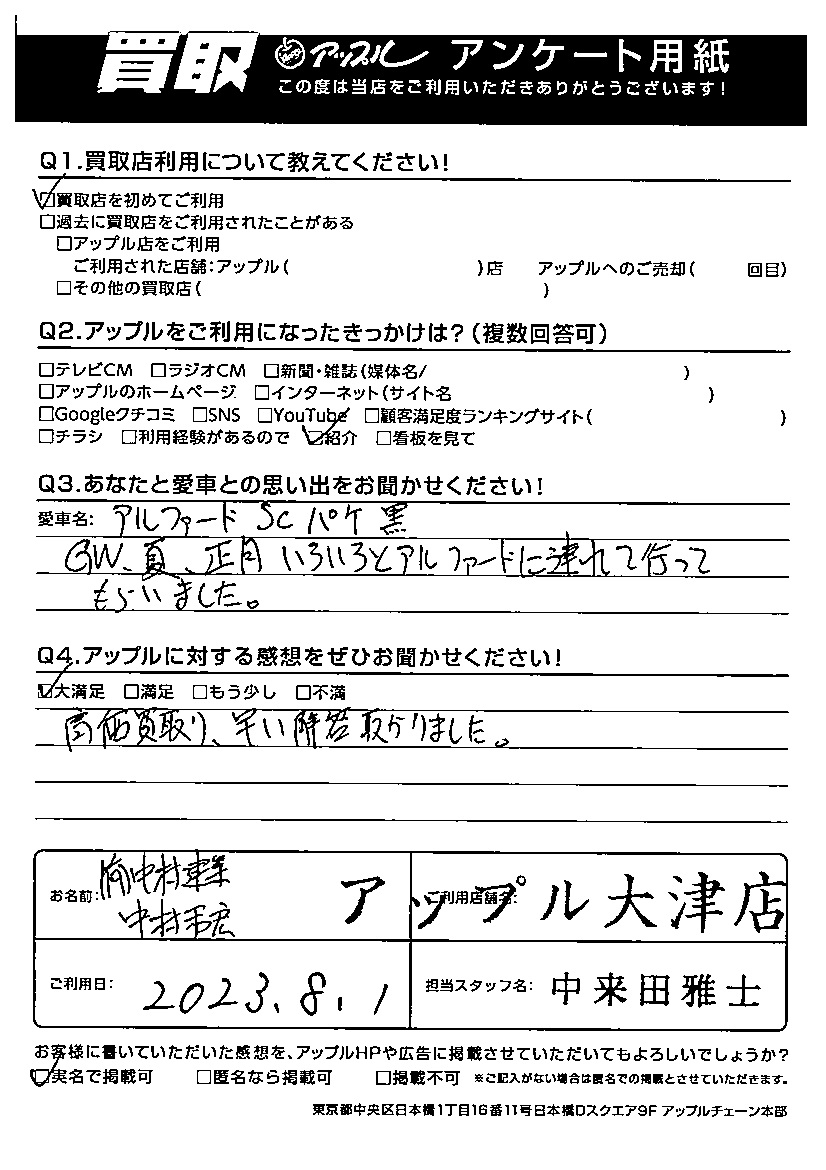 買取 アップル アンケート用紙
この度は当店をご利用いただきありがとうございます!
Q1.買取店利用について教えてください!
☑買取店を初めてご利用
□過去に買取店をご利用されたことがある
□アップル店をご利用
ご利用された店舗:アップル( )店 アップルへのご売却( 回目)
□その他の買取店( )
Q2.アップルをご利用になったきっかけは?(複数回答可)
□テレビCM □ラジオCM □新聞・雑誌(媒体名/ )
□アップルのホームページ □インターネット(サイト名 )
□Googleクチコミ □SNS □YouTube □顧客満足度ランキングサイト( )
□チラシ □利用経験があるので ☑紹介 □看板を見て
Q3.あなたと愛車との思い出をお聞かせください!
愛車名: アルファード SC パケ 黒
GW、夏、正月 いろいろとアルファードに連れて行って
もらいました。
Q4.アップルに対する感想をぜひお聞かせください!
☑大満足 □満足 □もう少し □不満
高価買取り、早い解答 取かりました。
お名前: (有)中村
中村
ご利用店舗名: アップル大津店
ご利用日: 2023.8.1
担当スタッフ名: 中来田雅士
お客様に書いていただいた感想を、アップルHPや広告に掲載させていただいてもよろしいでしょうか?
☑実名で掲載可 □匿名なら掲載可 □掲載不可 ※ご記入がない場合は匿名での掲載とさせていただきます。
東京都中央区日本橋1丁目16番11号日本橋Dスクエア9F アップルチェーン本部